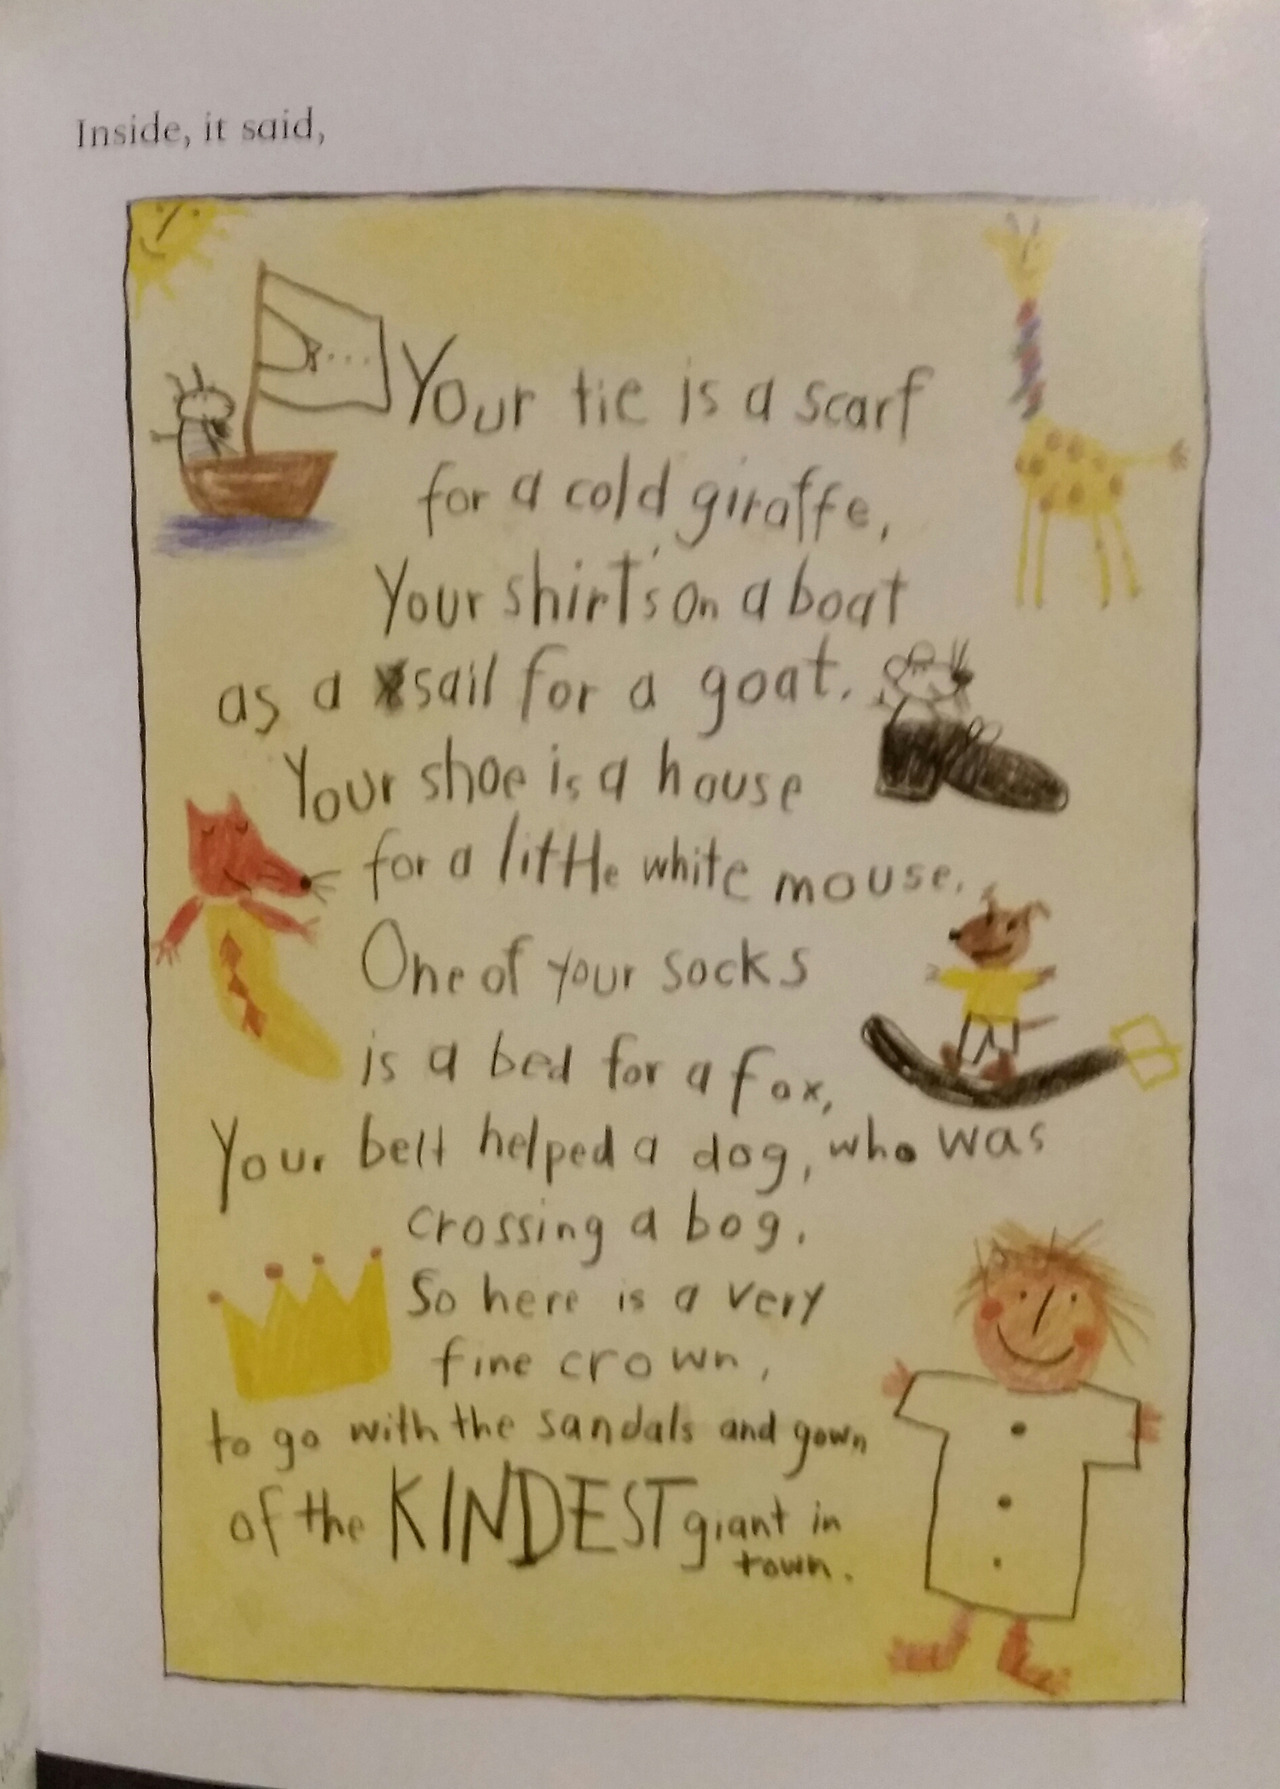 Inside, it said,
Your tie is a scarf
for a cold giraffe,
Your shirt's on a boat
as a sail for a goat.
Your shoe is a house
for a little white mouse.
One of your socks
is a bed for a fox,
Your belt helped a dog, who was
crossing a bog.
So here is a very
fine crown,
to go with the sandals and gown
of the KINDEST giant in
town.